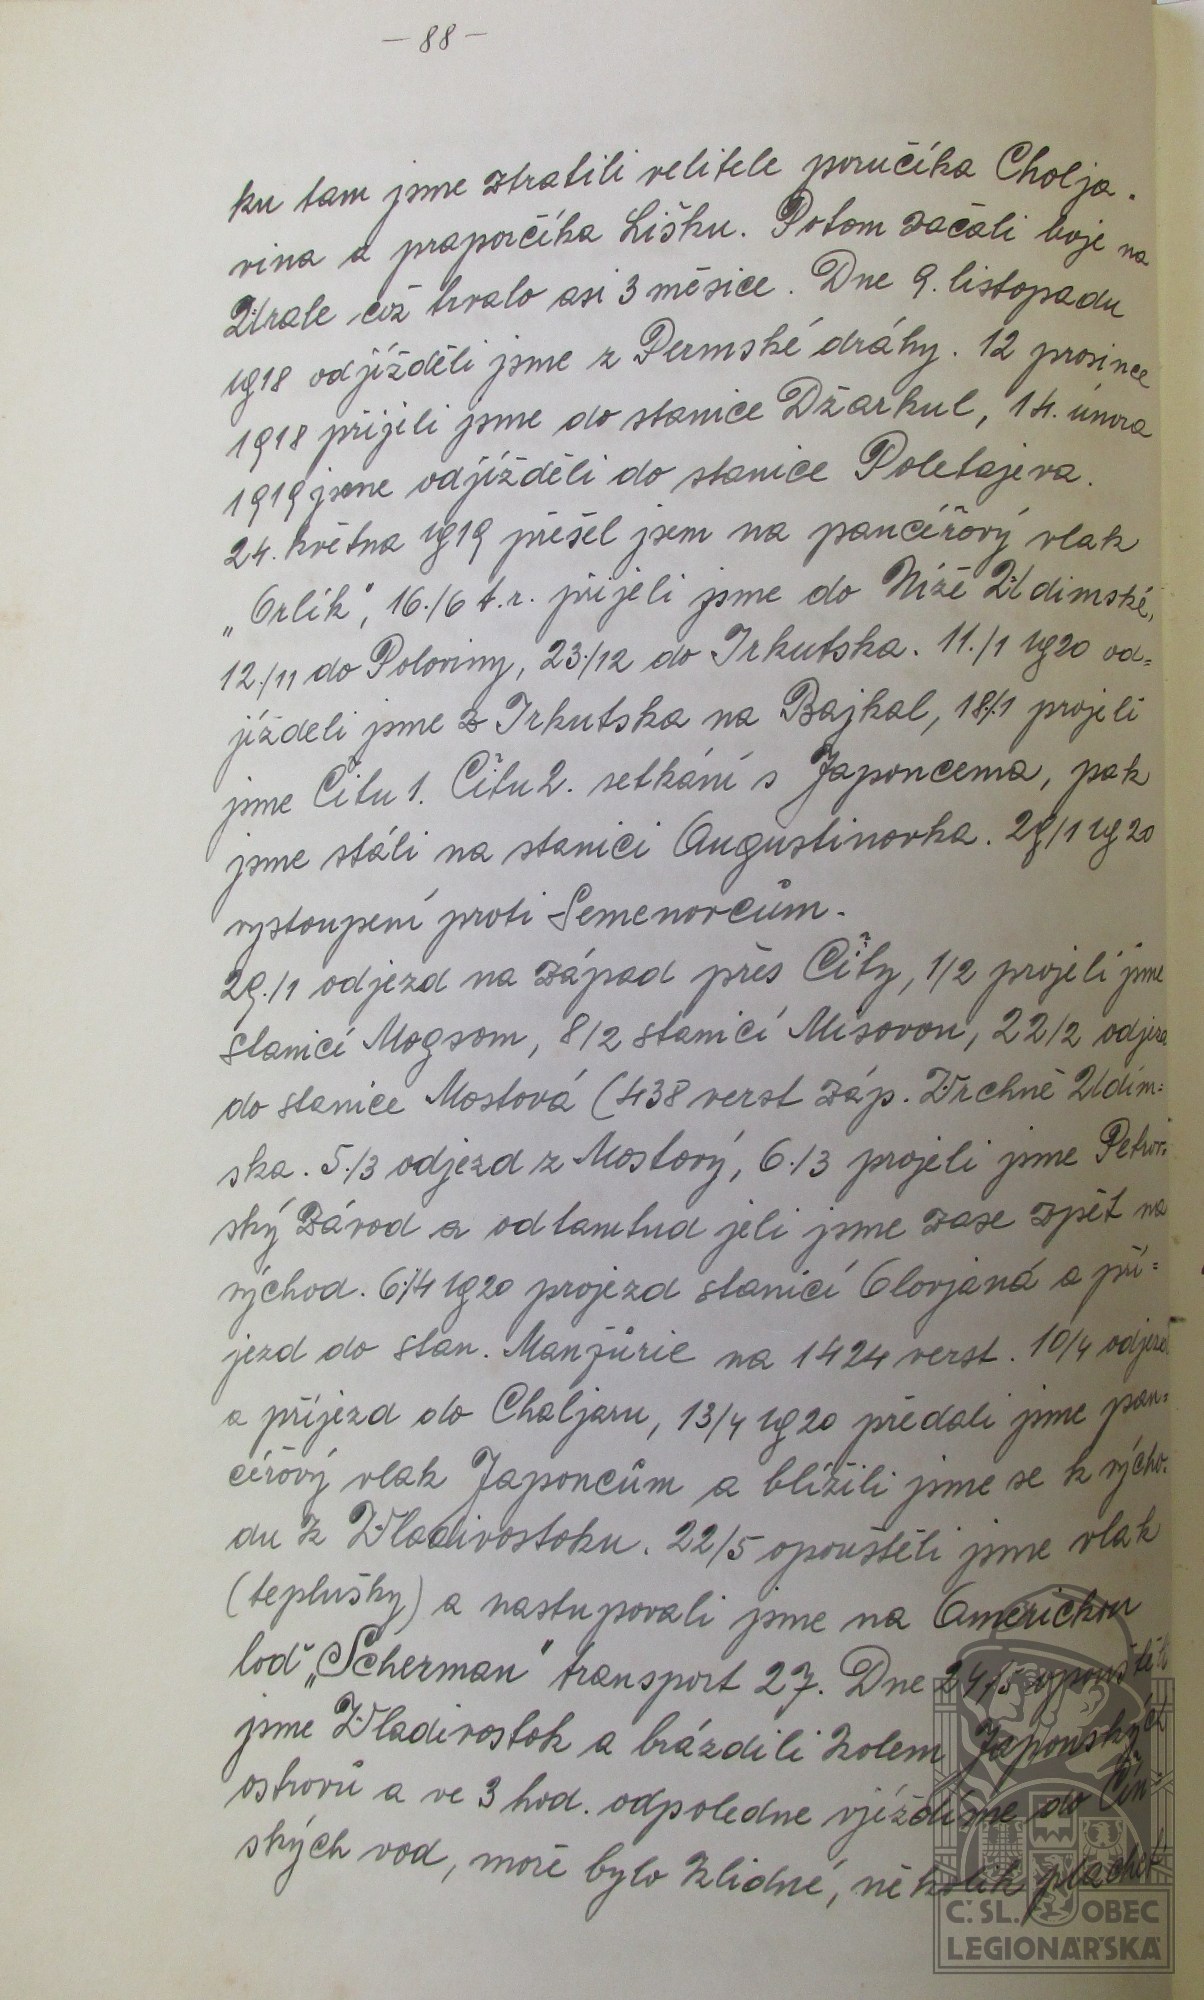 — 88 —
ku tam jsme ztratili velitele poručíka Cholja-
vina a praporčíka Lišku. Potom začali boje na
Urale což trvalo asi 3 měsíce. Dne 9. listopadu
1918 odjížděli jsme z Permské dráhy. 12 prosince
1918 přijeli jsme do stanice Džarkul, 14. února
1919 jsme odjížděli do stanice Poletajeva.
24. května 1919 přešel jsem na pancéřový vlak
„Orlík", 16./6 t.r. přijeli jsme do Niže Udimské,
12./11 do Poloviny, 23./12 do Irkutska. 11./1 1920 od=
jížděli jsme z Irkutska na Bajkal, 18./1 projeli
jsme Čitu 1. Čitu 2. setkání s Japoncema, pak
jsme stáli na stanici Augustinovka. 29/1 1920
vystoupení proti Semenovcům.
29./1 odjezd na západ přes Čity, 1/2 projeli jsme
stanicí Mogsom, 8/2 stanicí Misovou, 22/2 odjezd
do stanice Mostová (438 verst záp. Vrchně Udim=
ska. 5./3 odjezd z Mostový, 6./3 projeli jsme Petrov-
ský Závod a odtamtud jeli jsme zase zpět na
východ. 6./4 1920 projezd stanicí Olovjaná a pří=
jezd do stan. Manžurie na 1424 verst. 10/4 odjezd
a příjezd do Chaljaru, 13/4 1920 předali jsme pan=
céřový vlak Japoncům a blížili jsme se k výcho-
du k Vladivostoku. 22/5 opouštěli jsme vlak
(teplušky) a nastupovali jsme na Americkou
loď „Scherman" transport 27. Dne 24/5 opouštěli
jsme Vladivostok a brázdili kolem Japonských
ostrovů a ve 3 hod. odpoledne vjíždíme do Čín-
ských vod, moře bylo klidné, několik plachet
Č. SL. OBEC
LEGIONÁŘSKÁ